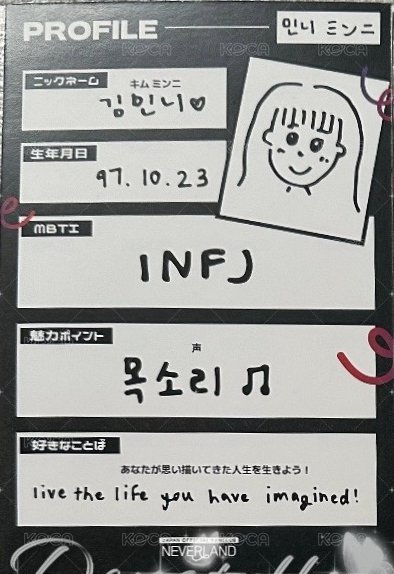 PROFILE
민니 ミンニ
ニックネーム
キム ミンニ
김민니♡
生年月日
97.10.23
MBTI
INFJ
魅力ポイント
声
목소리 ♫
好きなことば
あなたが思い描いてきた人生を生きよう!
live the life you have imagined!
JAPAN OFFICIAL FANCLUB
NEVERLAND